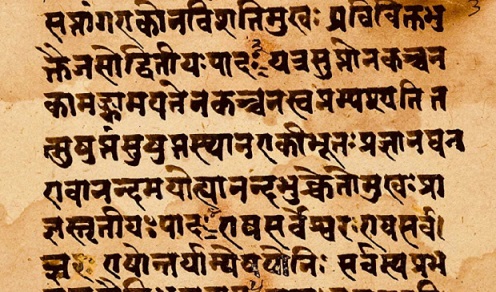 सप्तांगएकोनविंशतिमुखः प्रविविक्तभु
क्तैजसोद्वितीयःपादः यत्रसुप्तोनकञ्चन
कामङ्कामयतेनकञ्चनस्वप्नम्पश्यति त
त्सुषुप्तंसुषुप्तस्थानएकीभूतःप्रज्ञानघन
एवानन्दमयोह्यानन्दभुक्चेतोमुखःप्रा
ज्ञस्तृतीयःपादः एषसर्वेश्वरःएषसर्व
ज्ञः एषोन्तर्याम्येषयोनिः सर्वस्यप्रभ